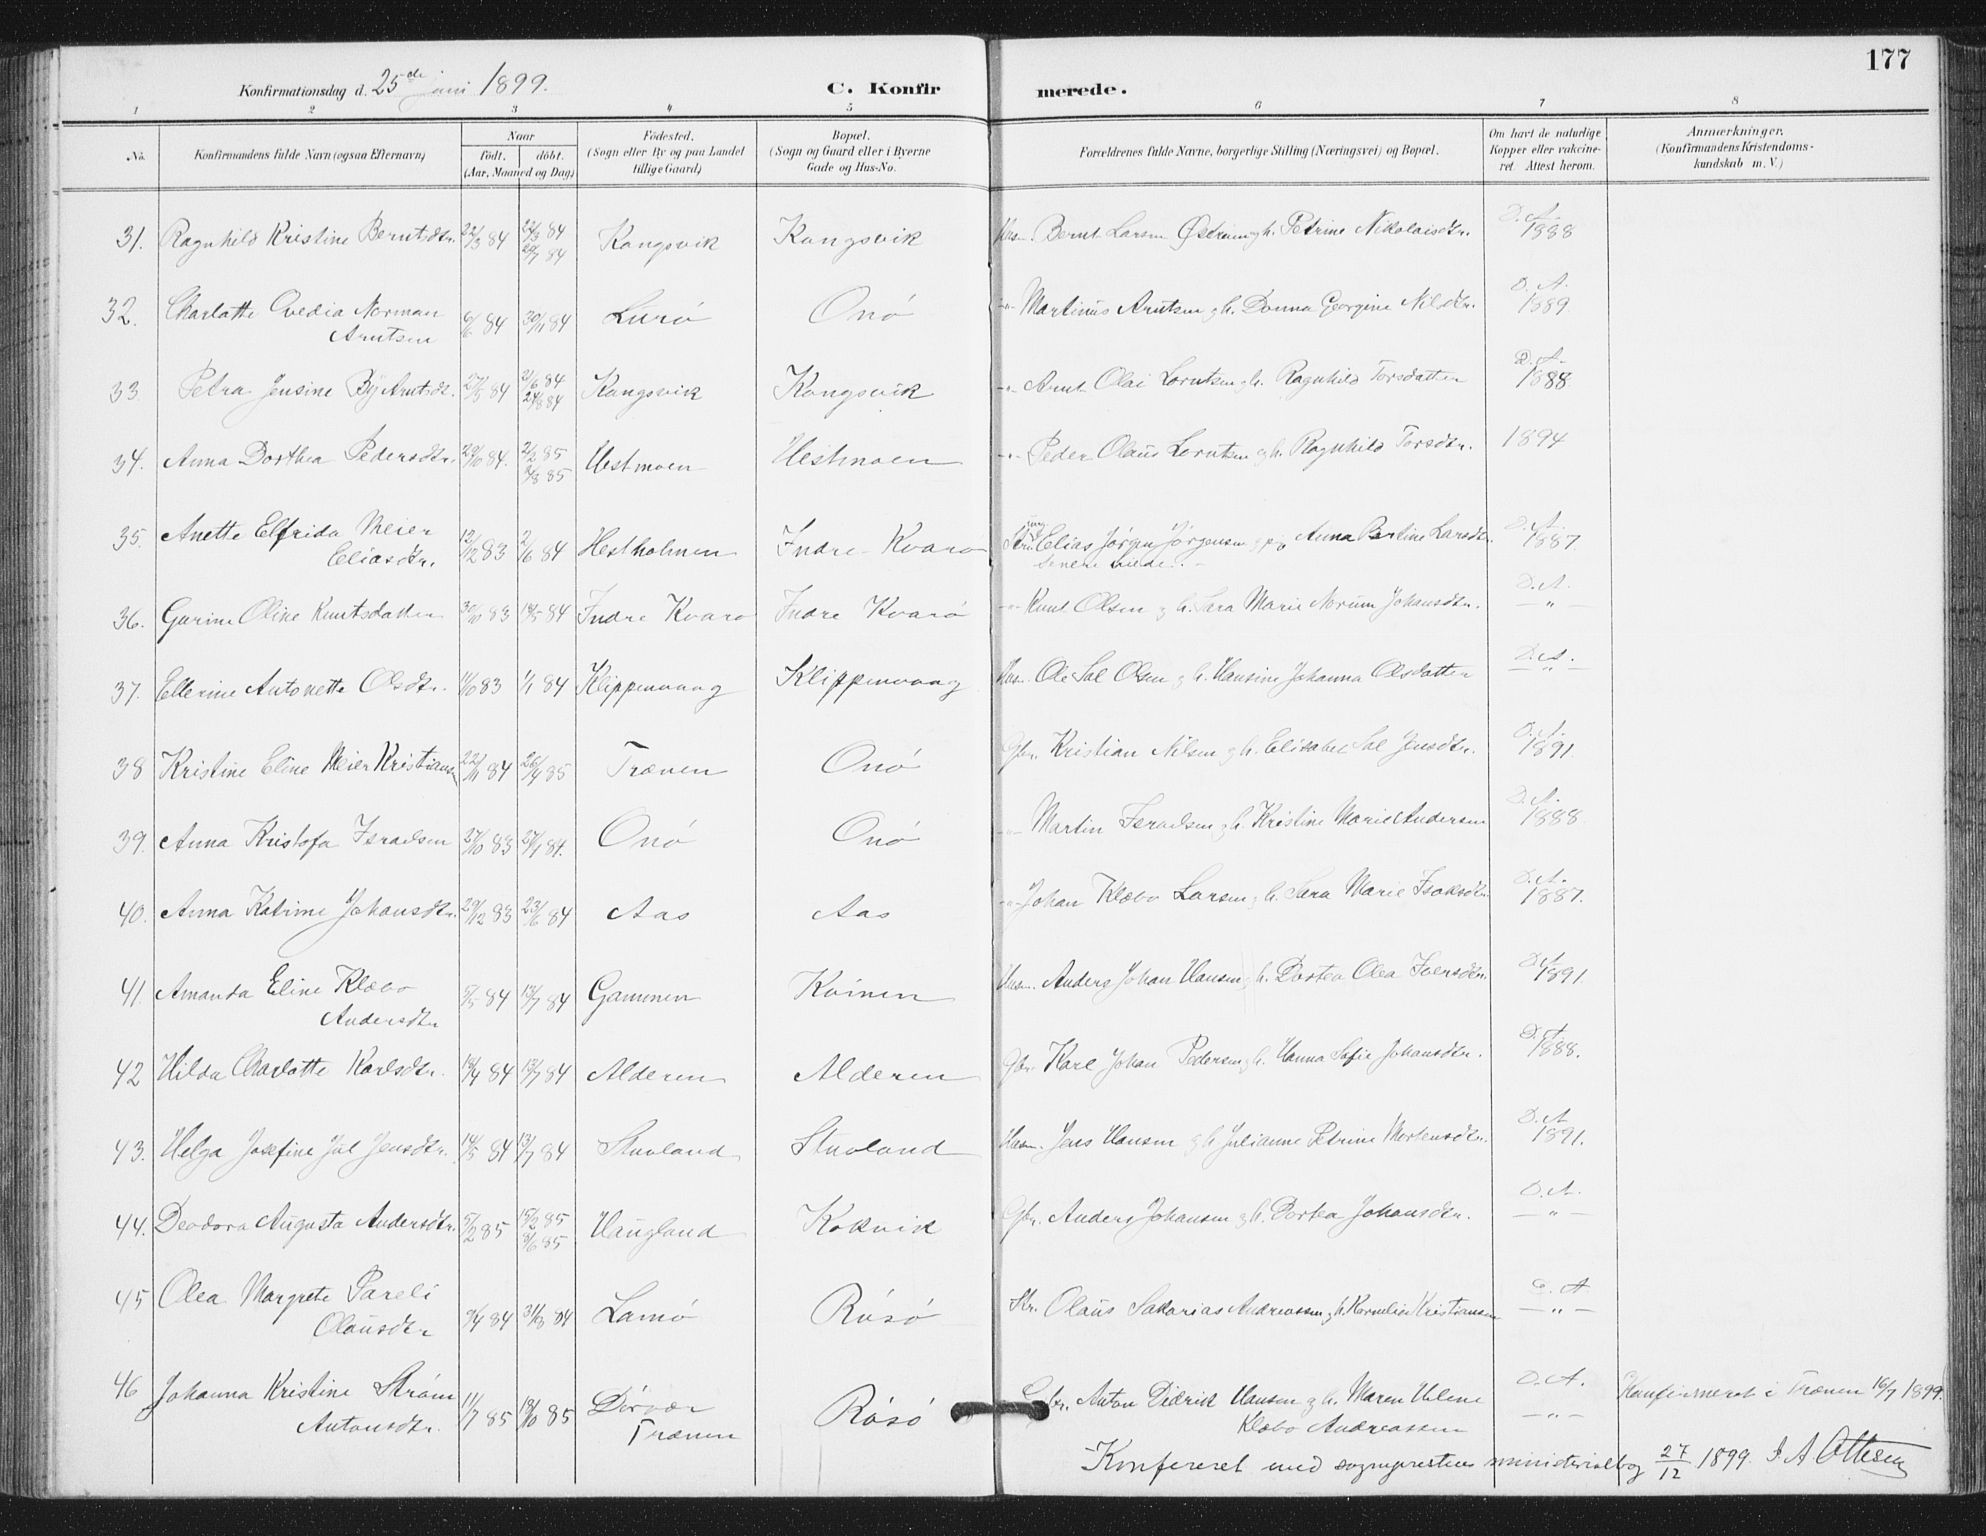 177
Konfirmationsdag d. 25de juni 1899. C. Konfirmerede.
1 2 3 4 5 6 7 8
No. Konfirmandens fulde Navn (ogsaa Efternavn) Naar födt. döbt. (Aar, Maaned og Dag) Födested. (Sogn eller By og paa Landet tillige Gaard) Bopæl. (Sogn og Gaard eller i Byerne Gade og Hus-No. Forældrenes fulde Navne, borgerlige Stilling (Næringsvei) og Bopæl. Om havt de naturlige Kopper eller vakcineret. Attest herom. Anmærkninger. (Konfirmandens Kristendomskundskab m. V.)
31. Ragnhild Kristine Berntsdtr. 22/3 84 22/3 84 20/7 84 Kongsvik Kongsvik Husm. Bernt Larsen g h. Petrine Nikolaisdtr. D. A. 1888
32. Charlotte Ovedia Norman Arntsen 6/6 84 30/11 84 Lurö Onö -"- Martinus Arntsen g h. Donna Georgine Nilsdtr. D. A. 1889.
33. Petra Jensine By Arntsdtr. 27/5 84 2/6 84 24/8 84 Kongsvik Kongsvik -"- Arnt Olai Lorntsen g h. Ragnhild Torsdatter D. A. 1888
34. Anna Dorthea Pedersdtr. 29/10 84. 2/2 85 2/8 85 Hestmoen Hestmoen -"- Peder Olaus Lorntsen g h. Ragnhild Torsdtr. 1894
35. Anette Elfrida Meier Eliasdtr. 12/12 83 2/6 84 Hestholmen Indre-Kvarö Elias Jörgen Jörgensen g pig. Anna Bertine Larsdtr. senere viede. D. A. 1887
36. Gurine Oline Knutsdatter 30/10 83 18/5 84 Indre Kvarö Indre Kvarö -"- Knut Olsen g h. Sara Marie Norum Johansdtr. D. A. -"-
37. Ellerine Antonette Olsdtr. 11/10 83 1/1 84 Klippenvaag Klippenvaag Husm. Ole Sal Olsen g h. Hansine Johanna Olsdatter D. A. -"-
38 Kristine Eline Meier Kristiansen 22/11 84 26/4 85 Trænen Onö Gbr. Kristian Nilsen g h. Elisabet Sal Jensdtr. D. A. 1891.
39. Anna Kristofa Israelsen 27/10 83 27/1 84. Onö Onö -"- Martin Israelsen g h. Kristine Marie Andersen D. A. 1888.
40. Anna Katrine Johansdtr. 29/12 83 23/6 84 Aas Aas -"- Johan Klæbo Larsen g h. Sara Marie Isaksdtr. D. A. 1887.
41. Amanda Eline Klæbo Andersdtr 5/5 84 13/7 84 Gammen Kvinen Husm. Anders Johan Hansen g h. Dortea Olea Iversdtr. D. A. 1891.
42 Hilda Charlotte Karlsdtr. 18/4 84 13/7 84 Alderen Alderen Gbr. Karl Johan Pedersen g h. Hanna Sofie Johansdtr. D. A. 1888.
43. Helga Josefine Jul Jensdtr. 14/5 84 13/7 84 Stuvland Stuvland Husm. Jens Hansen g h. Julianne Petrine Mortensdtr. D. A. 1891.
44. Deodora Augusta Andersdtr. 5/2 85 15/2 85 8/6 85 Haugland Kokvik Gbr. Anders Johansen g h. Dortea Johansdtr. D. A. -"-
45 Olea Margrete Pareli Olausdtr 9/4 84 31/8 84 Lamö Rösö Str. Olaus Sakarias Andreassen g h. Kornelia Kristiansen D. A. -"-
46 Johanna Kristine Ström Antonsdtr. 11/7 85 18/10 85 Dörvær Trænen Rösö Gbr. Anton Didrik Hansen g h. Maren Helene Klæbo Andreassen D. A. -"- Konfirmeret i Trænen 16/7 1899.
Konfereret med sogneprestens ministerialbog 27/12 1899. I. A. Ottesen